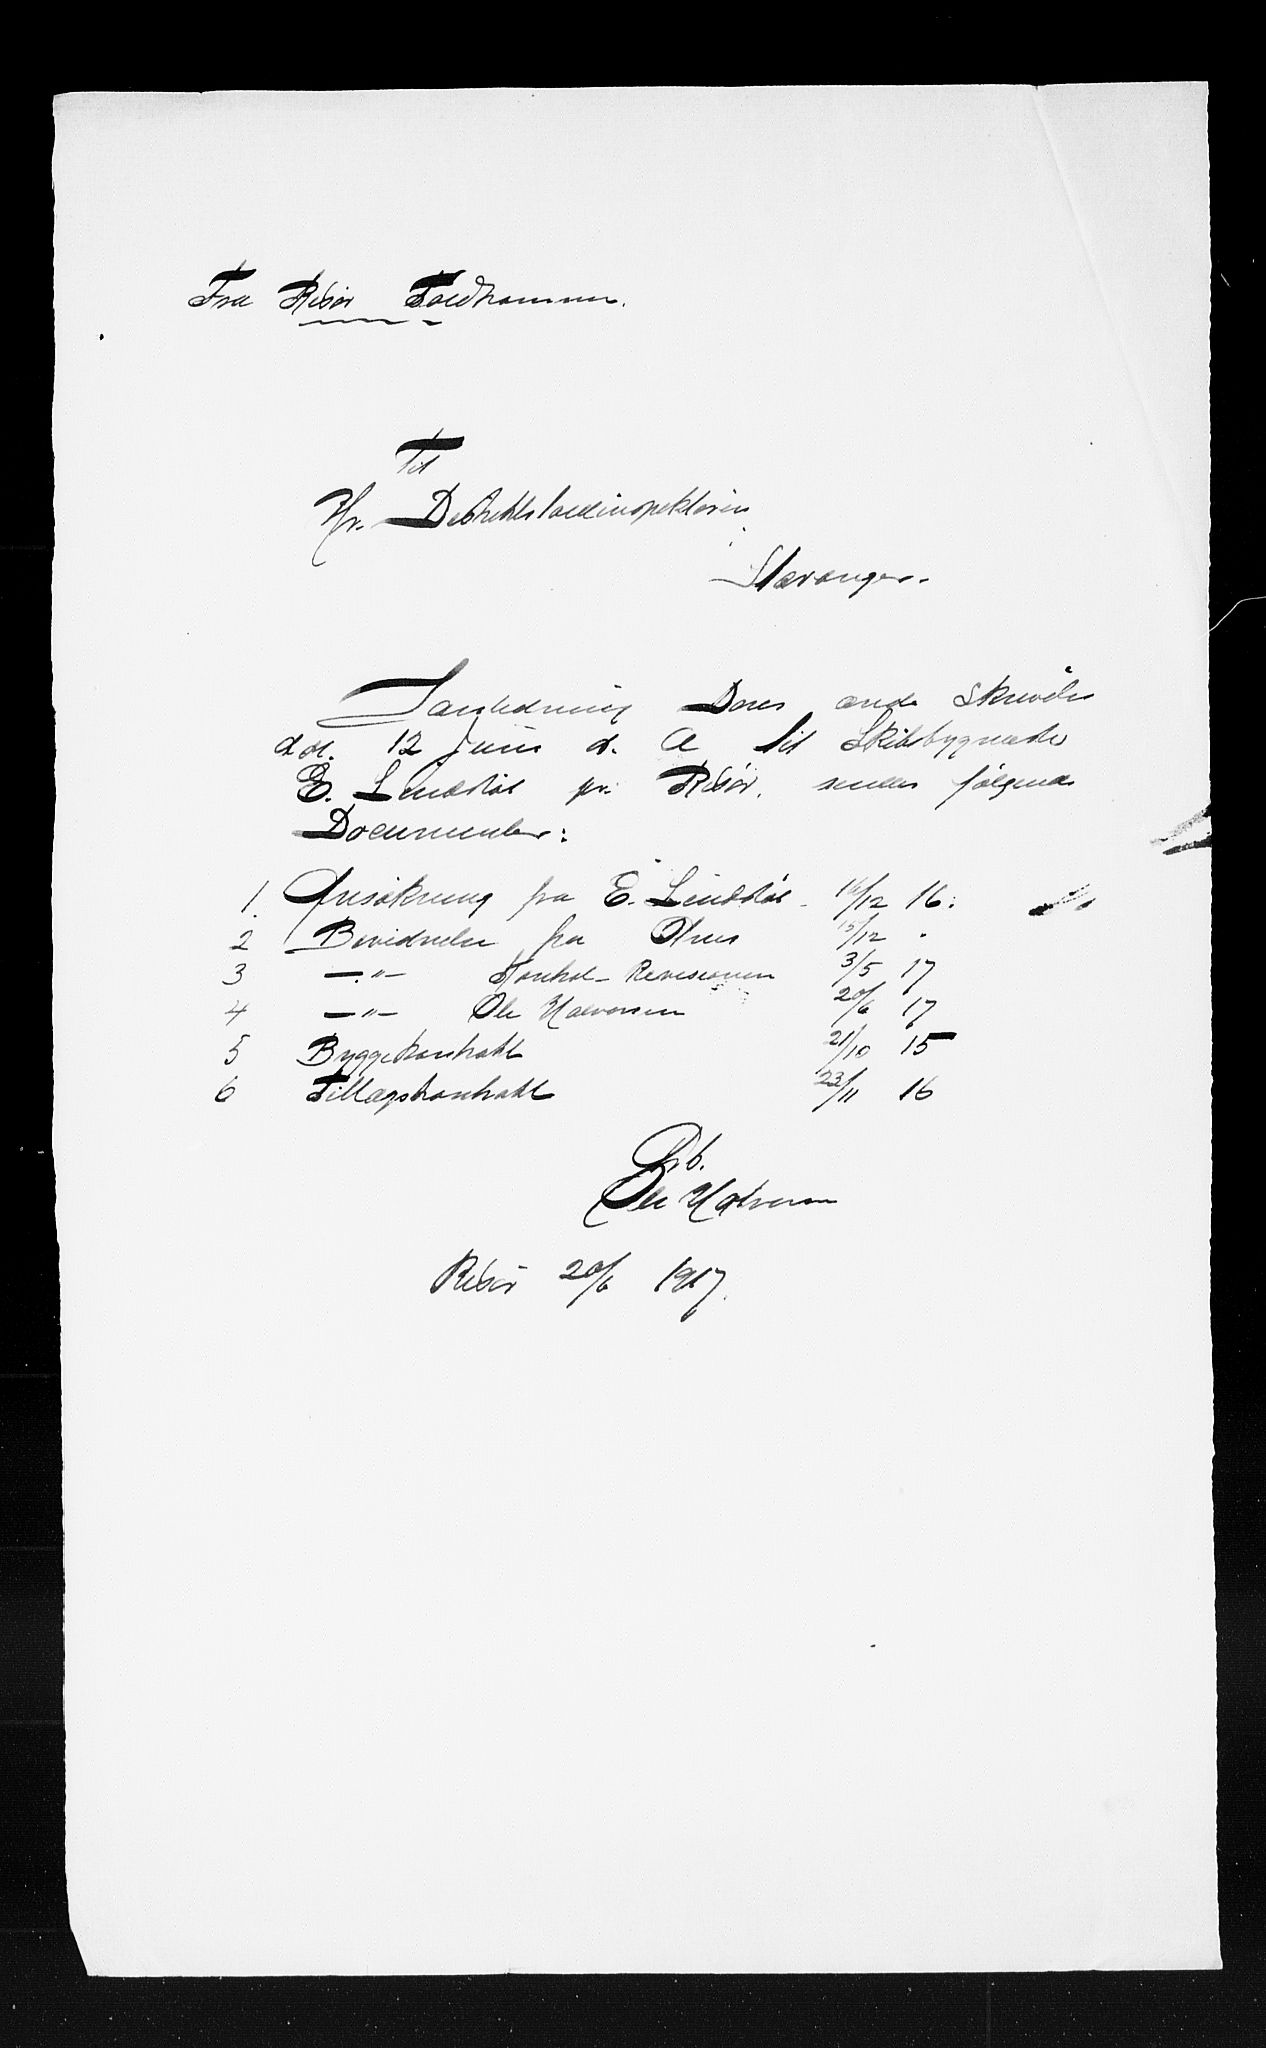 Fra Risør Toldkammer.
Til
Hr. Distriktstoldinspektøren
Stavanger.
I anledning Deres ærede Skrivelse
dat. 12 Juni d. A til Skibsbygmester
E. Lindstøl pr. Risør. sendes følgende
Documenter:
1. Ansøkning fra E. Lindstøl - 14/12 16.
2 Bevidnelse fra 15/12 "
3 —„— Kontrol-Revisionen 3/5 17
4 —„— Ole Halvorsen 20/6 17
5 Byggekontrakt 21/10 15
6 Tillægskontrakt 23/11 16
Ærb.
Ole Halvorsen
Risør 20/6 1917.